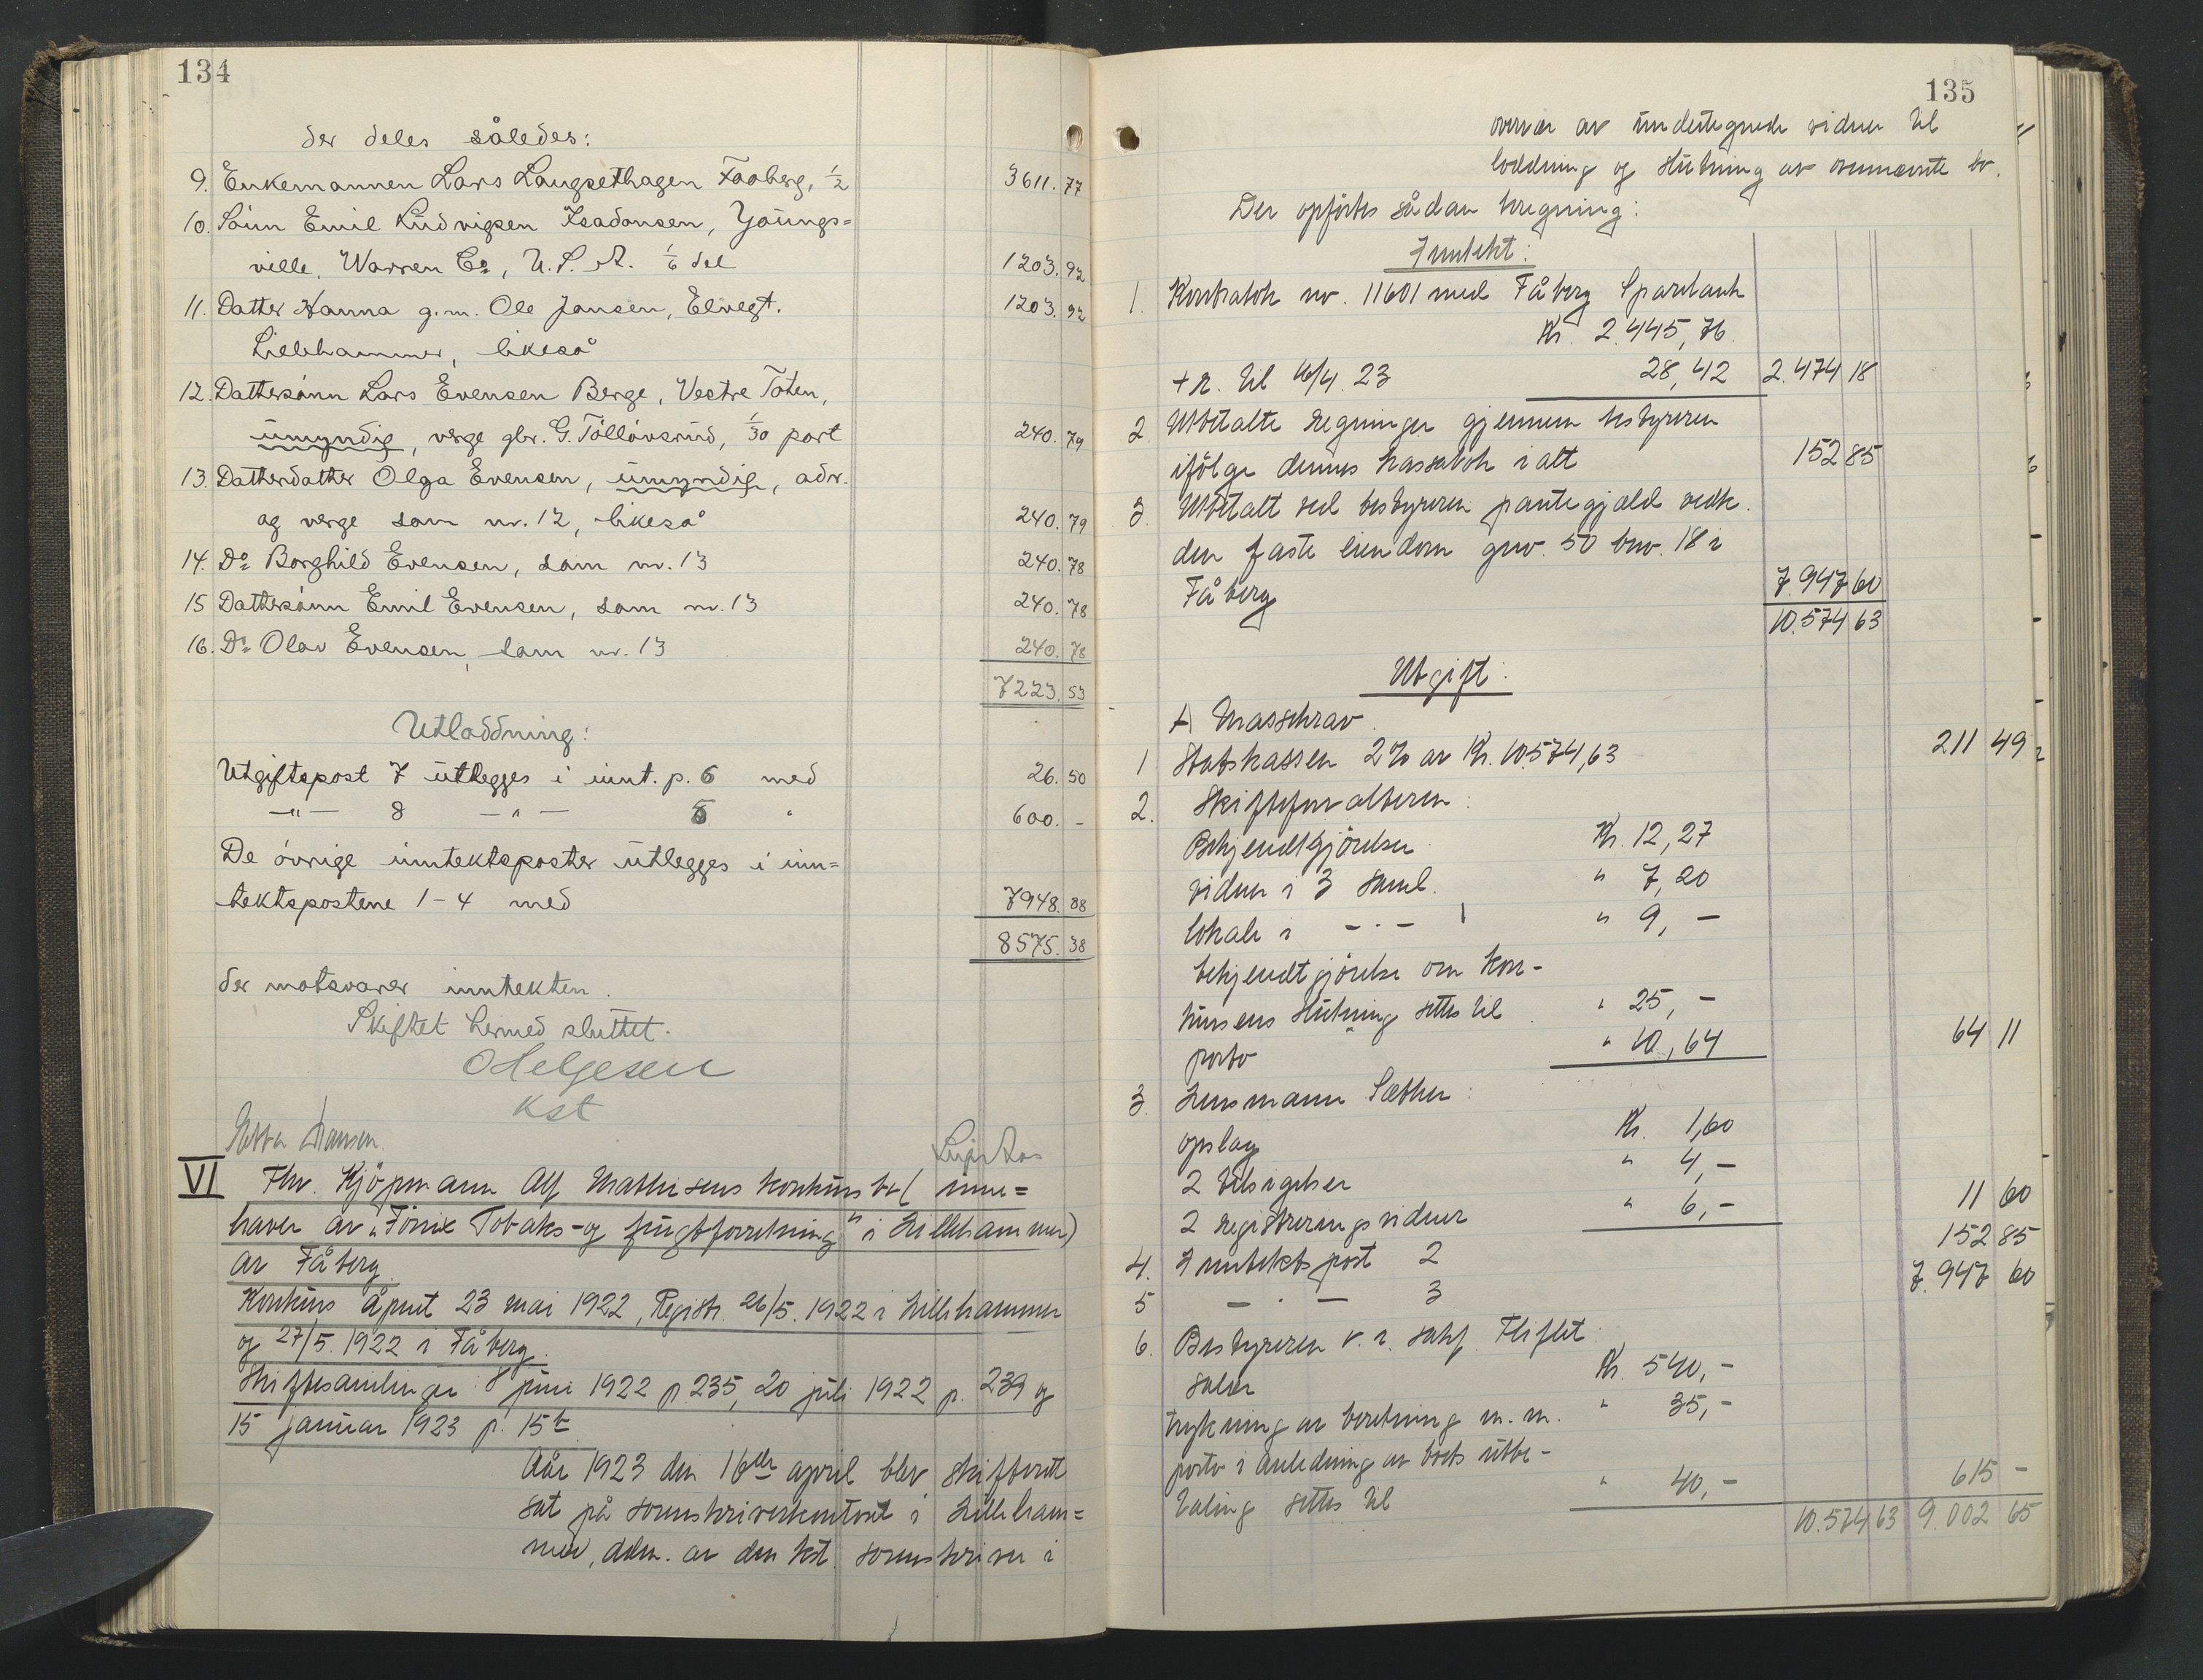 134
der deles således:
9. Enkemannen Lars Laugsethagen Faaberg, 1/2 3611.77
10. Sönn Emil Ludvigsen Isadansen, Youngs=
ville, Warren Co, U.S.A. 1/6 del 1203.92
11. Datter Hanna g.m. Ole Jansen, Elvegt.
Lillehammer, likeså 1203.92
12. Dattersönn Lars Evensen Berge, Vestre Toten,
umyndig, verge gbr. G. Töllövsrud, 1/30 part 240.79
13. Datterdatter Olga Evensen, umyndig, adr.
og verge som nr. 12, likeså 240.79
14. Do Borghild Evensen, som nr. 13 240.78
15 Dattersönn Emil Evensen, som nr. 13 240.78
16. Do Olav Evensen, som nr. 13 240.78
7223.53
Utloddning:
Utgiftspost 7 utlegges i innt. p. 6 med 26.50
—"— 8 —"— 5 " 600.-
De övrige inntektsposter utlegges i inn=
tektspostene 1-4 med 7948.88
8575.38
der motsvarer inntekten.
Skiftet hermed sluttet.
O Helgesen
Kst
Hansen
VI Fhv. Kjöpmann Alf Mathisens konkursbo (inne=
haver av "Fönix Tobaks- og frugtforretning" i Lillehammer)
av Fåberg.
Konkurs åpnet 23 mai 1922, Registr. 26/5. 1922 i Lillehammer
og 27/5. 1922 i Fåberg.
Skiftesamlinger: 8 juni 1922 p. 235, 20 juli 1922 p. 239 og
15 januar 1923 p. 15b.
Aår 1923 den 16de april blev skifterett
sat på sorenskriverkontoret i Lilleham=
mer, adm. av den kst. sorenskriver i
135
overvær av undertegnede vidner til
loddning og slutning av ovennævnte bo.
Der opförtes sådan beregning:
Inntekt:
1. Kontrabok nr. 11601 med Fåberg Sparebank
Kr. 2.445,76.
+ r. til 16/4. 23 28,42 2.474 18
2. Utbetalte regninger gjennem bestyreren
ifölge dennes kassabok i alt 152 85
3. Utbetalt ved bestyreren pantegjæld vedk.
den faste eiendom gnr. 50 bnr. 18 i
Fåberg 7.947 60
10.574 63
Utgift:
A Massekrav.
1 Statskassen 2% av Kr. 10.574,63 211 49
2. Skifteforvalteren:
Bekjendtgjörelser Kr. 12,27
vidner i 3 saml. " 7,20
lokale i — · — " 9,—
bekjendtgjörelse om kon-
kursens slutning settes til " 25,—
porto " 10,64 64 11
3. Lensmann Sæther:
opslag Kr. 1,60
2 tilsigelser " 4,—
2 registreringsvidner " 6,— 11 60
4. Inntektspost 2 152 85
5 — · — 3 7.947 60
6. Bestyreren o.r. sakf. Fliflet:
salær Kr. 540,-
trykning av beretning m.m. " 35,-
porto i anledning av boets utbe-
taling settes til " 40,- 615 -
10.574 63 9.002 65